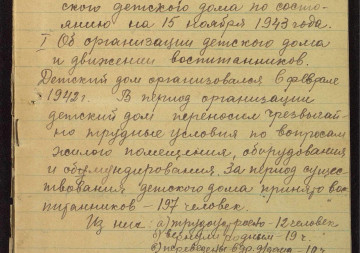 ского детского дома по состо-
янию на 15 ноября 1943 года.
I Об организации детского дома
и движении воспитанников.
Детский дом организовался в феврале
1942 г. В период организации
детский дом переносил чрезвычай-
но трудные условия по вопросам
жилого помещения, оборудования
и обмундирования. За период сущес-
твования детского дома принято вос-
питанников – 197 человек.
Из них: а) трудоустроено – 12 человек
в) вернули родным – 19 ч.
с) переведены в др.